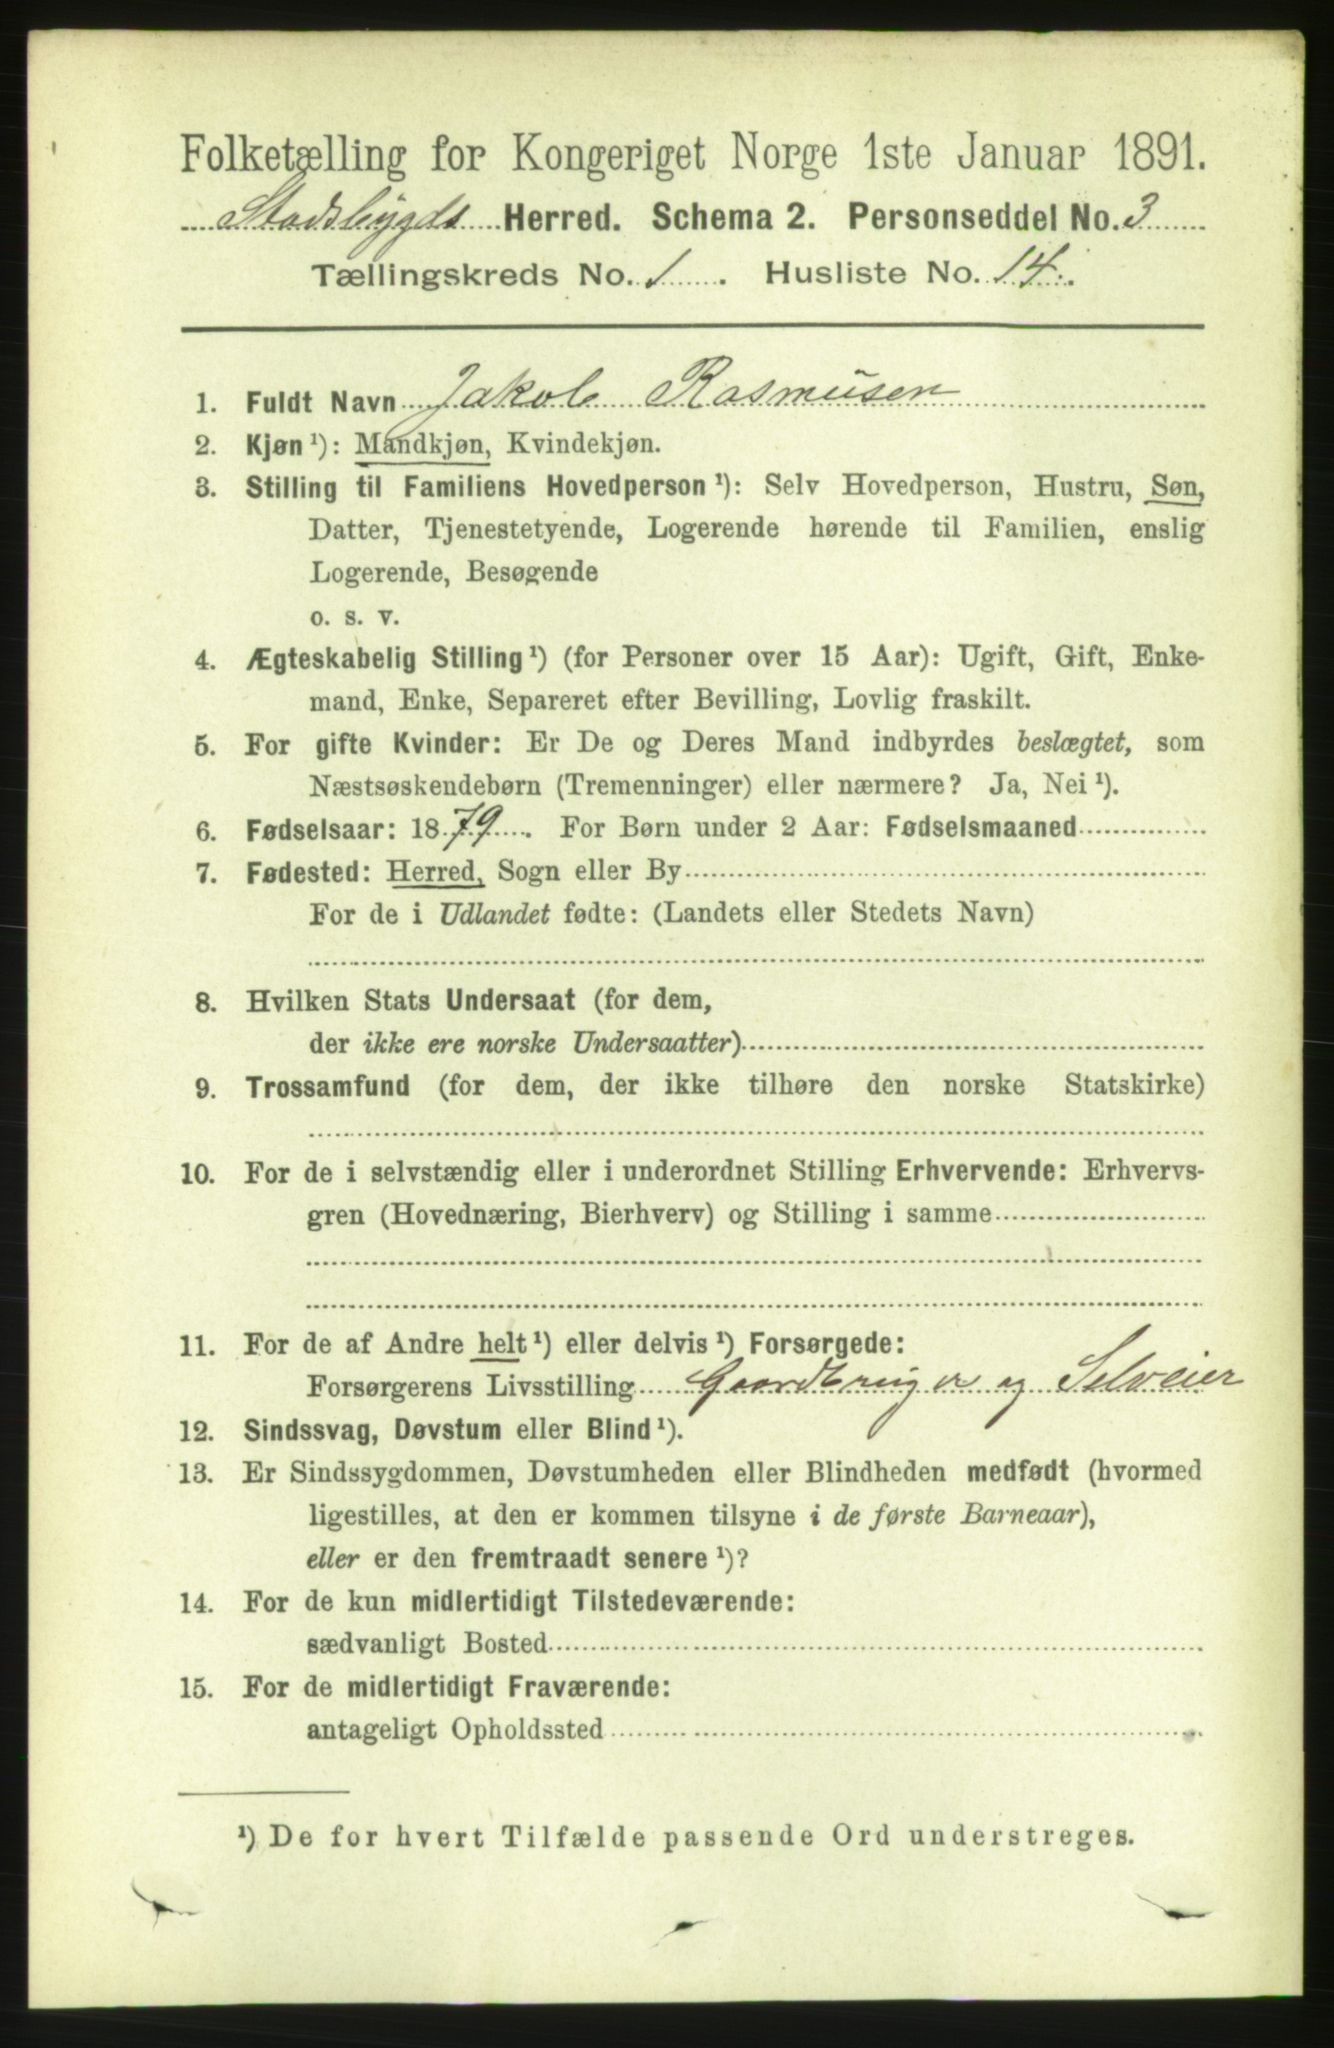 Folketælling for Kongeriget Norge 1ste Januar 1891.
Stadsbygds Herred. Schema 2. Personseddel No. 3
Tællingskreds No. 1. Husliste No. 14.
1. Fuldt Navn Jakob Rasmusen
2. Kjøn ¹): Mandkjøn, Kvindekjøn.
3. Stilling til Familiens Hovedperson ¹): Selv Hovedperson, Hustru, Søn,
Datter, Tjenestetyende, Logerende hørende til Familien, enslig
Logerende, Besøgende
o. s. v.
4. Ægteskabelig Stilling ¹) (for Personer over 15 Aar): Ugift, Gift, Enke-
mand, Enke, Separeret efter Bevilling, Lovlig fraskilt.
5. For gifte Kvinder: Er De og Deres Mand indbyrdes beslægtet, som
Næstsøskendebørn (Tremenninger) eller nærmere? Ja, Nei ¹).
6. Fødselsaar: 1879. For Børn under 2 Aar: Fødselsmaaned
7. Fødested: Herred, Sogn eller By
For de i Udlandet fødte: (Landets eller Stedets Navn)
8. Hvilken Stats Undersaat (for dem,
der ikke ere norske Undersaatter)
9. Trossamfund (for dem, der ikke tilhøre den norske Statskirke)
10. For de i selvstændig eller i underordnet Stilling Erhvervende: Erhvervs-
gren (Hovednæring, Bierhverv) og Stilling i samme
11. For de af Andre helt ¹) eller delvis ¹) Forsørgede:
Forsørgerens Livsstilling Gaardbruger og Selveier
12. Sindssvag, Døvstum eller Blind ¹).
13. Er Sindssygdommen, Døvstumheden eller Blindheden medfødt (hvormed
ligestilles, at den er kommen tilsyne i de første Barneaar),
eller er den fremtraadt senere ¹)?
14. For de kun midlertidigt Tilstedeværende:
sædvanligt Bosted
15. For de midlertidigt Fraværende:
antageligt Opholdssted
¹) De for hvert Tilfælde passende Ord understreges.